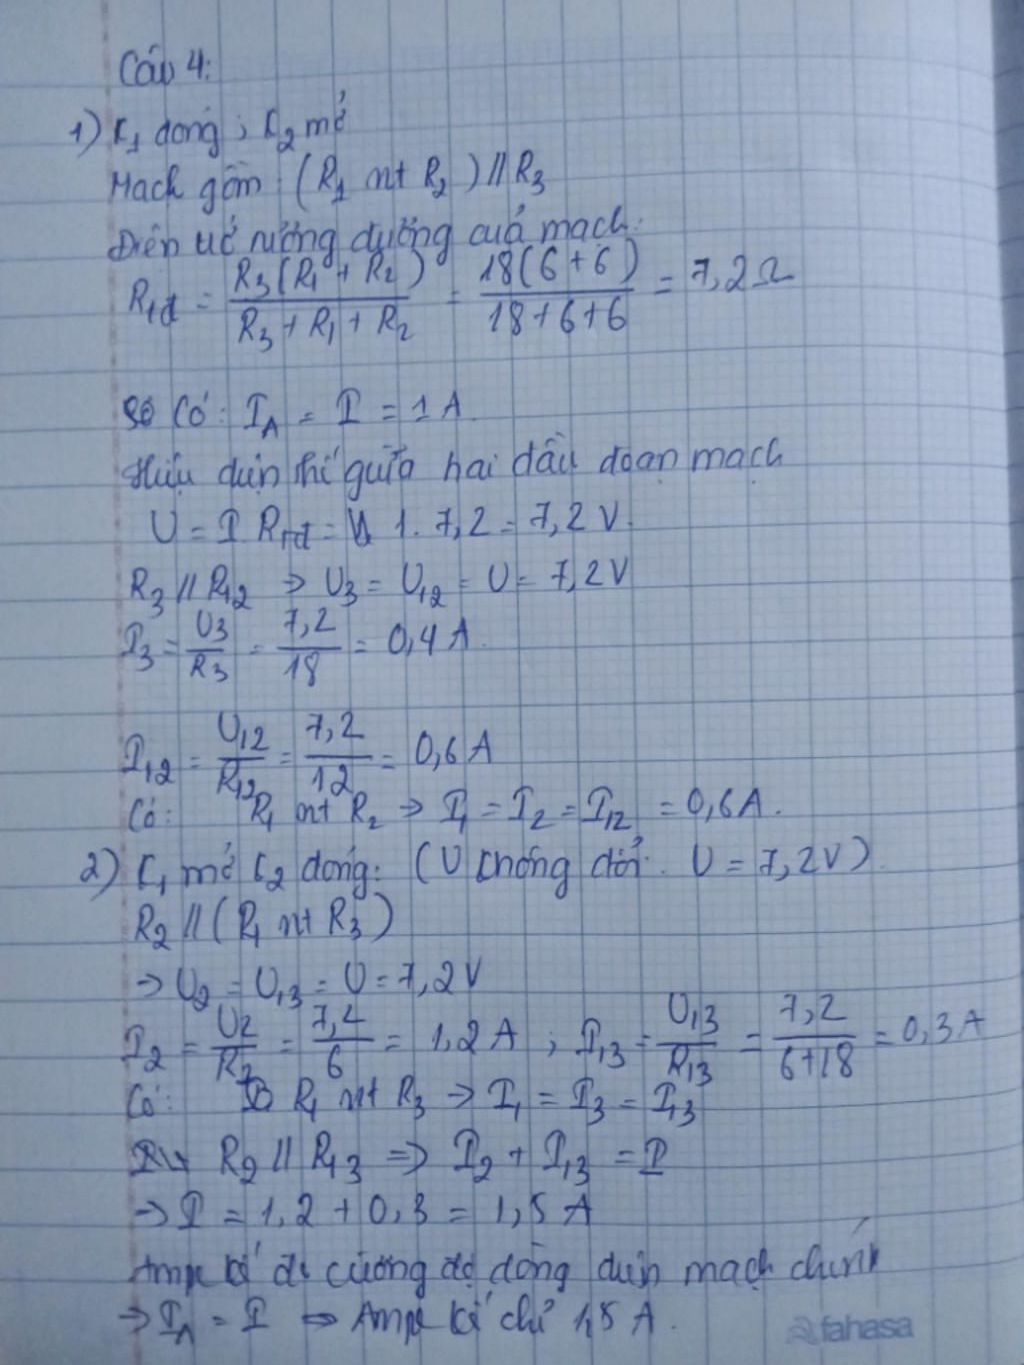 Câu 4:
1) K₁ đóng; K₂ mở
Mạch gồm: (R₁ nt R₂) // R₃
Điện trở tương đương của mạch:
R₁đ = R₃(R₁ + R₂) / (R₃ + R₁ + R₂) = 18(6+6) / (18+6+6) = 7,2 Ω
Có: I_A = I = 1 A.
Hiệu điện thế giữa hai đầu đoạn mạch
U = I R₁đ = 1. 7,2 = 7,2 V.
R₃ // R₁₂ ⇒ U₃ = U₁₂ = U = 7,2V
I₃ = U₃/R₃ = 7,2/18 = 0,4 A.
I₁₂ = U₁₂/R₁₂ = 7,2/12 = 0,6 A
Có: R₁ nt R₂ ⇒ I₁ = I₂ = I₁₂ = 0,6A.
2) K₁ mở K₂ đóng: (U không đổi. U = 7,2V).
R₂ // (R₁ nt R₃)
→ U₂ = U₁₃ = U = 7,2V
I₂ = U₂/R₂ = 7,2/6 = 1,2 A ; I₁₃ = U₁₃/R₁₃ = 7,2/(6+18) = 0,3 A
Có: R₁ nt R₃ → I₁ = I₃ = I₁₃
R₂ // R₁₃ ⇒ I₂ + I₁₃ = I
→ I = 1,2 + 0,3 = 1,5 A
Ampe kế đo cường độ dòng điện mạch chính
→ I_A = I ⇒ Ampe kế chỉ 1,5 A.
fahasa